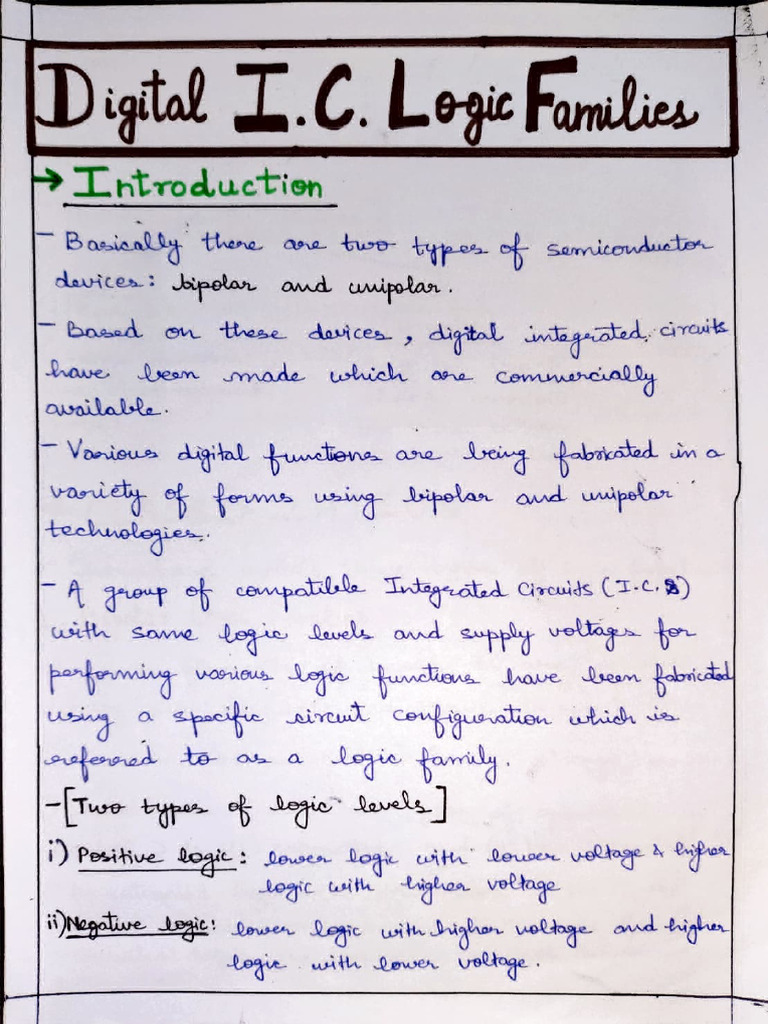 Digital I.C. Logic Families
→ Introduction
- Basically there are two types of semiconductor
devices: bipolar and unipolar.
- Based on these devices, digital integrated circuits
have been made which are commercially
available.
- Various digital functions are being fabricated in a
variety of forms using bipolar and unipolar
technologies.
- A group of compatible Integrated Circuits (I.C.S)
with same logic levels and supply voltages for
performing various logic functions have been fabricated
using a specific circuit configuration which is
referred to as a logic family.
-[Two types of logic levels]
i) Positive logic: lower logic with lower voltage & higher
logic with higher voltage
ii) Negative logic: lower logic with higher voltage and higher
logic with lower voltage.